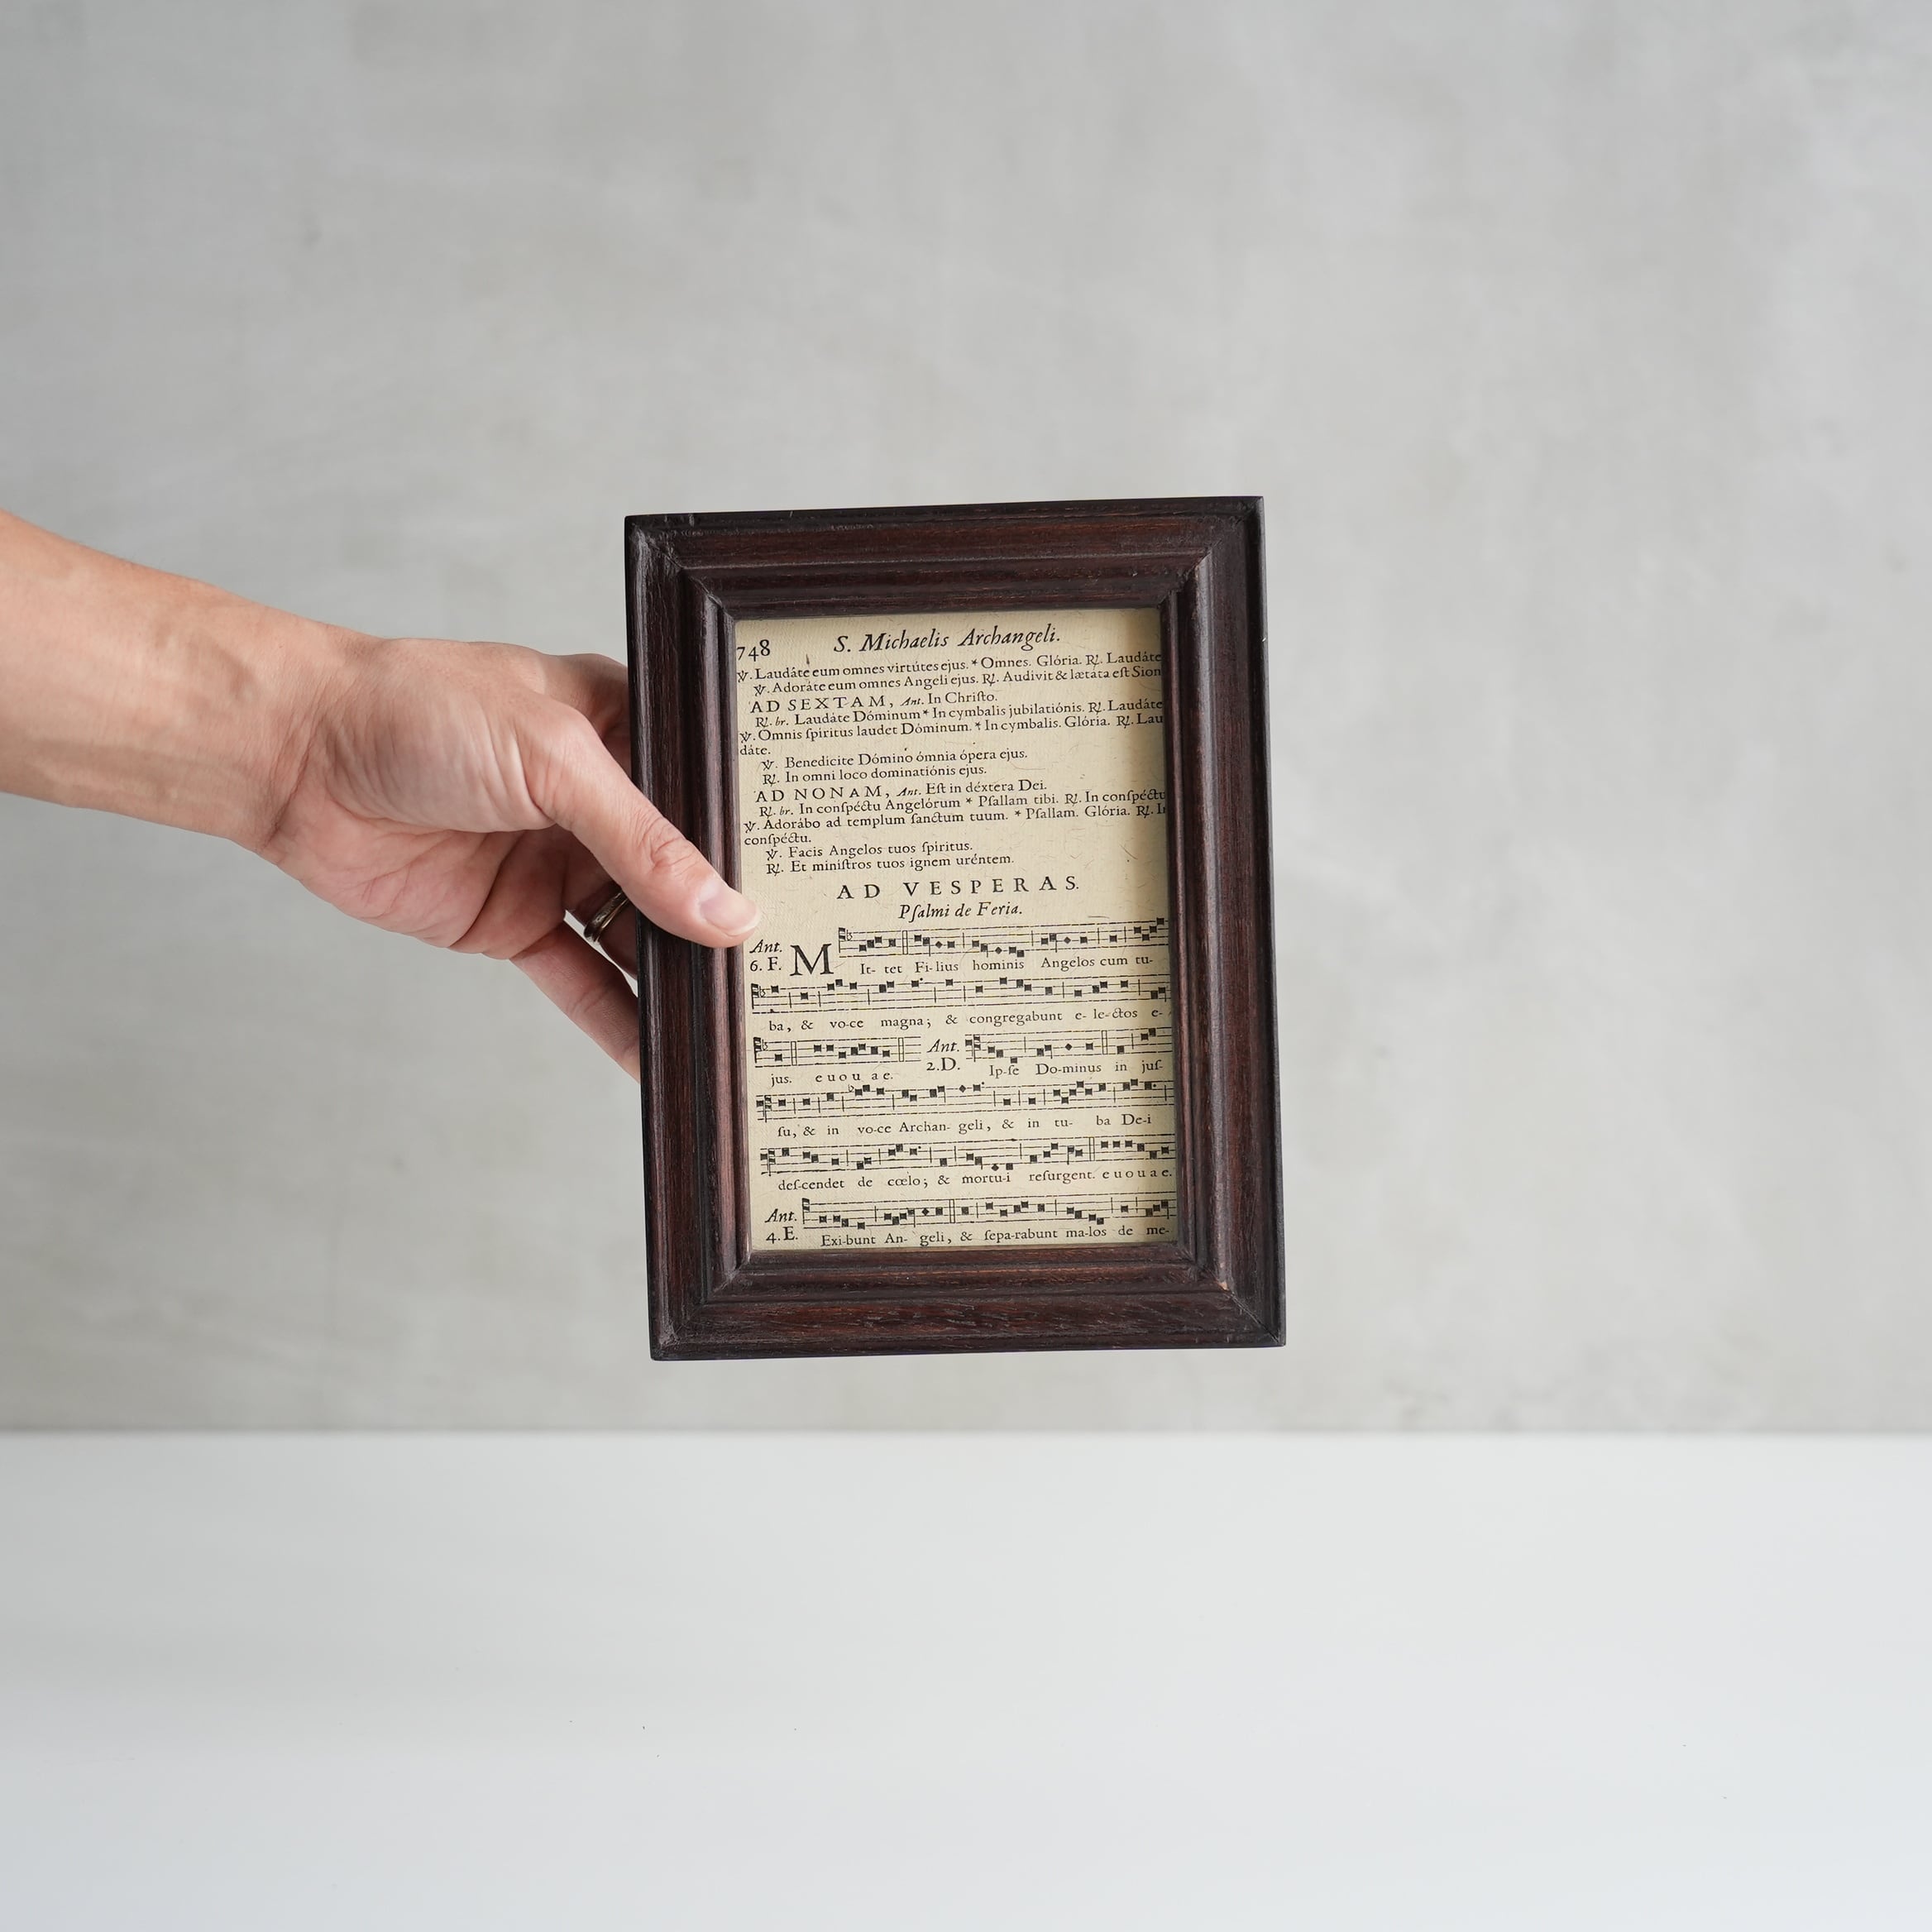 748 S. Michaelis Archangeli.
℣. Laudáte eum omnes virtútes ejus. * Omnes. Glória. ℟. Laudáte
℣. Adoráte eum omnes Angeli ejus. ℟. Audivit & lætáta eſt Sion
AD SEXTAM, Ant. In Chriſto.
℟. br. Laudáte Dóminum * In cymbalis jubilatiónis. ℟. Laudáte
℣. Omnis ſpiritus laudet Dóminum. * In cymbalis. Glória. ℟. Lau
dáte.
℣. Benedicite Dómino ómnia ópera ejus.
℟. In omni loco dominatiónis ejus.
AD NONAM, Ant. Eſt in déxtera Dei.
℟. br. In conſpéctu Angelórum * Pſallam tibi. ℟. In conſpéctu
℣. Adorábo ad templum ſanctum tuum. * Pſallam. Glória. ℟. In
conſpéctu.
℣. Facis Angelos tuos ſpiritus.
℟. Et miniſtros tuos ignem uréntem.
AD VESPERAS.
Pſalmi de Feria.
Ant.
6. F. MIt- tet Fi-lius hominis Angelos cum tu-
ba, & vo-ce magna; & congregabunt e- le-ctos e-
jus. e u o u a e. Ant. 2.D. Ip-ſe Do-minus in juſ-
ſu, & in vo-ce Archan- geli, & in tu- ba De-i
deſ-cendet de cœlo; & mortu-i reſurgent. e u o u a e.
Ant.
4. E. Exi-bunt An- geli, & ſepa-rabunt ma-los de me-